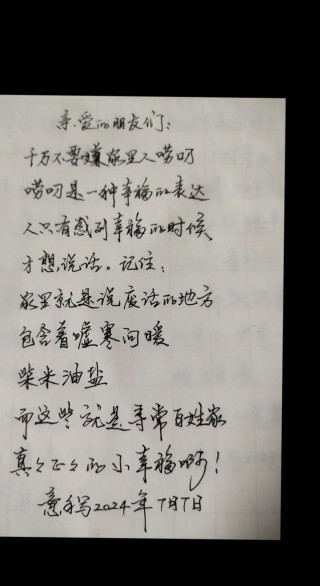 亲爱的朋友们：
千万不要嫌家里人唠叨
唠叨是一种幸福的表达
人只有感到幸福的时候
才想说话。记住：
家里就是说废话的地方
包含着嘘寒问暖
柴米油盐
而这些就是寻常百姓家
真々正々的小幸福啊！
写2024年7月7日